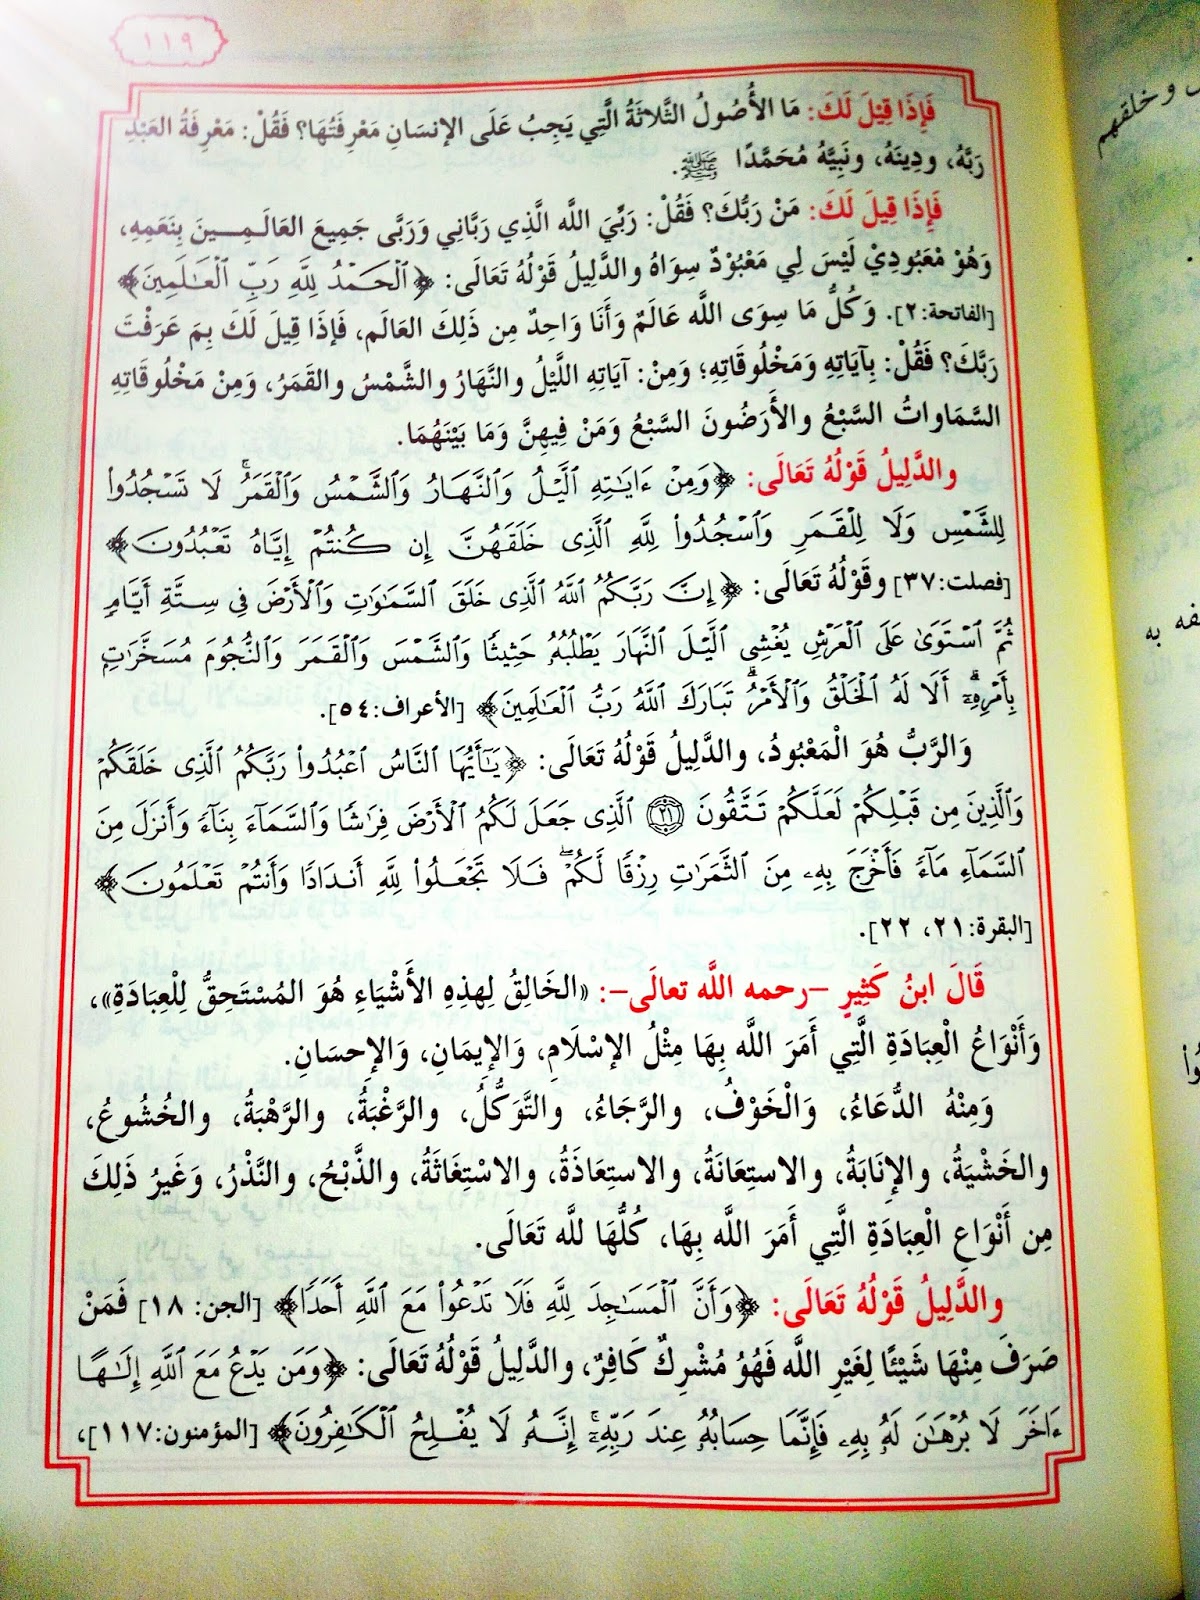 ١١٩
فَإِذَا قِيْلَ لَكَ: مَا الأُصُولُ الثَّلاثَةُ الَّتِي يَجِبُ عَلَى الإنسَانِ مَعْرِفَتُهَا؟ فَقُلْ: مَعْرِفَةُ العَبْدِ
رَبَّهُ، ودِينَهُ، ونَبِيَّهُ مُحَمَّدًا ﷺ.
فَإِذَا قِيلَ لَكَ: مَنْ رَبُّكَ؟ فَقُلْ: رَبِّيَ اللَّه الَّذِي رَبَّانِي وَرَبَّى جَمِيعَ العَالَمِينَ بِنَعَمِهِ،
وَهُوَ مْعَبُودِيْ لَيْسَ لِي مَعْبُوْدٌ سِوَاهُ والدَّلِيلُ قَوْلُهُ تَعَالَى: ﴿ٱلْحَمْدُ لِلَّهِ رَبِّ ٱلْعَـٰلَمِينَ﴾
[الفاتحة:٢]. وَكُلُّ مَا سِوَى اللَّه عَالَمٌ وَأَنَا وَاحِدٌ مِن ذَلِكَ العَالَم، فَإذَا قِيلَ لَكَ بِمَ عَرَفْتَ
رَبَّكَ؟ فَقُلْ: بِآيَاتِهِ وَمَخْلُوقَاتِهِ؛ ومِنْ: آيَاتِهِ اللَّيْلُ والنَّهَارُ والشَّمْسُ والقَمَرُ، وَمِنْ مَخْلُوقَاتِهِ
السَّمَاواتُ السَّبْعُ والأَرَضُونَ السَّبْعُ وَمَنْ فِيهِنَّ وَمَا بَيْنَهُمَا.
والدَّلِيلُ قَوْلُهُ تَعَالَى: ﴿وَمِنْ ءَايَـٰتِهِ ٱلَّيْلُ وَٱلنَّهَارُ وَٱلشَّمْسُ وَٱلْقَمَرُ ۚ لَا تَسْجُدُوا۟
لِلشَّمْسِ وَلَا لِلْقَمَرِ وَٱسْجُدُوا۟ لِلَّهِ ٱلَّذِى خَلَقَهُنَّ إِن كُنتُمْ إِيَّاهُ تَعْبُدُونَ﴾
[فصلت:٣٧] وقَوْلُهُ تَعَالَى: ﴿إِنَّ رَبَّكُمُ ٱللَّهُ ٱلَّذِى خَلَقَ ٱلسَّمَـٰوَٰتِ وَٱلْأَرْضَ فِى سِتَّةِ أَيَّامٍ
ثُمَّ ٱسْتَوَىٰ عَلَى ٱلْعَرْشِ يُغْشِى ٱلَّيْلَ ٱلنَّهَارَ يَطْلُبُهُۥ حَثِيثًا وَٱلشَّمْسَ وَٱلْقَمَرَ وَٱلنُّجُومَ مُسَخَّرَٰتٍۭ
بِأَمْرِهِۦٓ ۗ أَلَا لَهُ ٱلْخَلْقُ وَٱلْأَمْرُ ۗ تَبَارَكَ ٱللَّهُ رَبُّ ٱلْعَـٰلَمِينَ﴾ [الأعراف:٥٤].
وَالرَّبُّ هُوَ الْمَعْبُودُ، والدَّلِيلُ قَوْلُهُ تَعَالَى: ﴿يَـٰٓأَيُّهَا ٱلنَّاسُ ٱعْبُدُوا۟ رَبَّكُمُ ٱلَّذِى خَلَقَكُمْ
وَٱلَّذِينَ مِن قَبْلِكُمْ لَعَلَّكُمْ تَتَّقُونَ ٢١ ٱلَّذِى جَعَلَ لَكُمُ ٱلْأَرْضَ فِرَٰشًا وَٱلسَّمَآءَ بِنَآءً وَأَنزَلَ مِنَ
ٱلسَّمَآءِ مَآءً فَأَخْرَجَ بِهِۦ مِنَ ٱلثَّمَرَٰتِ رِزْقًا لَّكُمْ ۖ فَلَا تَجْعَلُوا۟ لِلَّهِ أَندَادًا وَأَنتُمْ تَعْلَمُونَ﴾
[البقرة:٢١، ٢٢].
قَالَ ابنُ كَثِيرٍ -رحمه اللَّه تعالَى-: «الخَالِقُ لِهذِهِ الأَشْيَاءِ هُوَ المُسْتَحِقُّ لِلْعِبَادَةِ»،
وَأَنْوَاعُ الْعِبَادَةِ الَّتِي أَمَرَ اللَّه بِهَا مِثْلُ الإسْلَامِ، وَالإيمَانِ، وَالإحسَانِ.
وَمِنْهُ الدُّعَاءُ، وَالْخَوْفُ، والرَّجَاءُ، والتَّوَكُّلُ، والرَّغْبَةُ، والرَّهْبَةُ، والخُشُوعُ،
والخَشْيَةُ، والإنَابَةُ، والاستِعَانَةُ، والاستِعَاذَةُ، والاسْتِغَاثَةُ، والذَّبْحُ، والنَّذْرُ، وَغَيرُ ذَلِكَ
مِن أَنْوَاعِ الْعِبَادَةِ الَّتِي أَمَرَ اللَّه بِهَا، كُلُّهَا للَّه تَعَالَى.
والدَّلِيلُ قَوْلُهُ تَعَالَى: ﴿وَأَنَّ ٱلْمَسَـٰجِدَ لِلَّهِ فَلَا تَدْعُوا۟ مَعَ ٱللَّهِ أَحَدًا﴾ [الجن: ١٨] فَمَنْ
صَرَفَ مِنْهَا شَيْئًا لِغَيْرِ اللَّه فَهُوَ مُشْرِكٌ كَافِرٌ، والدَّلِيلُ قَوْلُهُ تَعَالَى: ﴿وَمَن يَدْعُ مَعَ ٱللَّهِ إِلَـٰهًا
ءَاخَرَ لَا بُرْهَـٰنَ لَهُۥ بِهِۦ فَإِنَّمَا حِسَابُهُۥ عِندَ رَبِّهِۦٓ ۚ إِنَّهُۥ لَا يُفْلِحُ ٱلْكَـٰفِرُونَ﴾ [المؤمنون:١١٧]،
وخلقهم
به